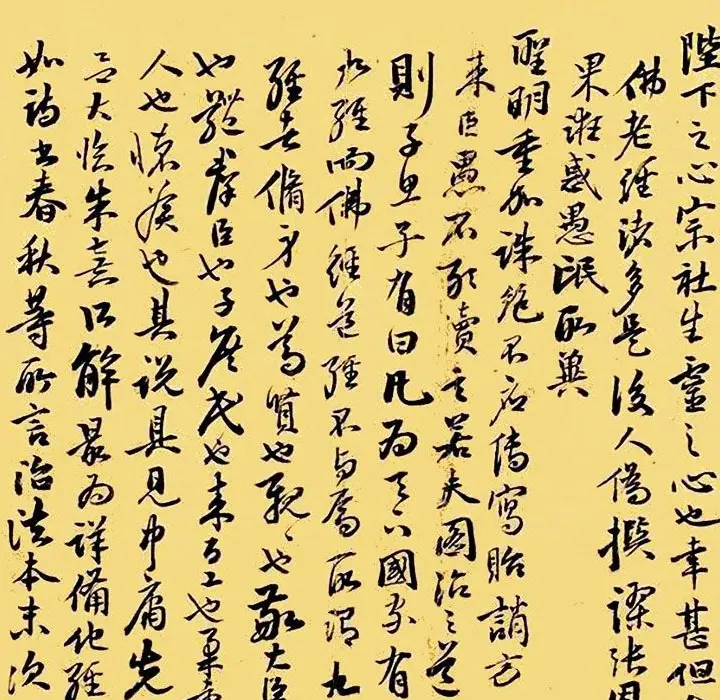 陛下之心宗社生靈之心也幸甚但
佛老經法多是後人偽撰謬張
果誰惑愚氓取與
聖明重加誅絶不啟傳寫貽誚方
来臣愚不能賣之若夫國治之道
則子思子有曰凡為天下國家有
九經而佛經道經不与焉所謂九
經者脩身也尊賢也親親也敬大臣
也體羣臣也子庶民也来百工也柔
人也懷諸侯也其說具見中庸先
大臨朱熹口解最為詳備他經
如詩書春秋等所言治法本末次